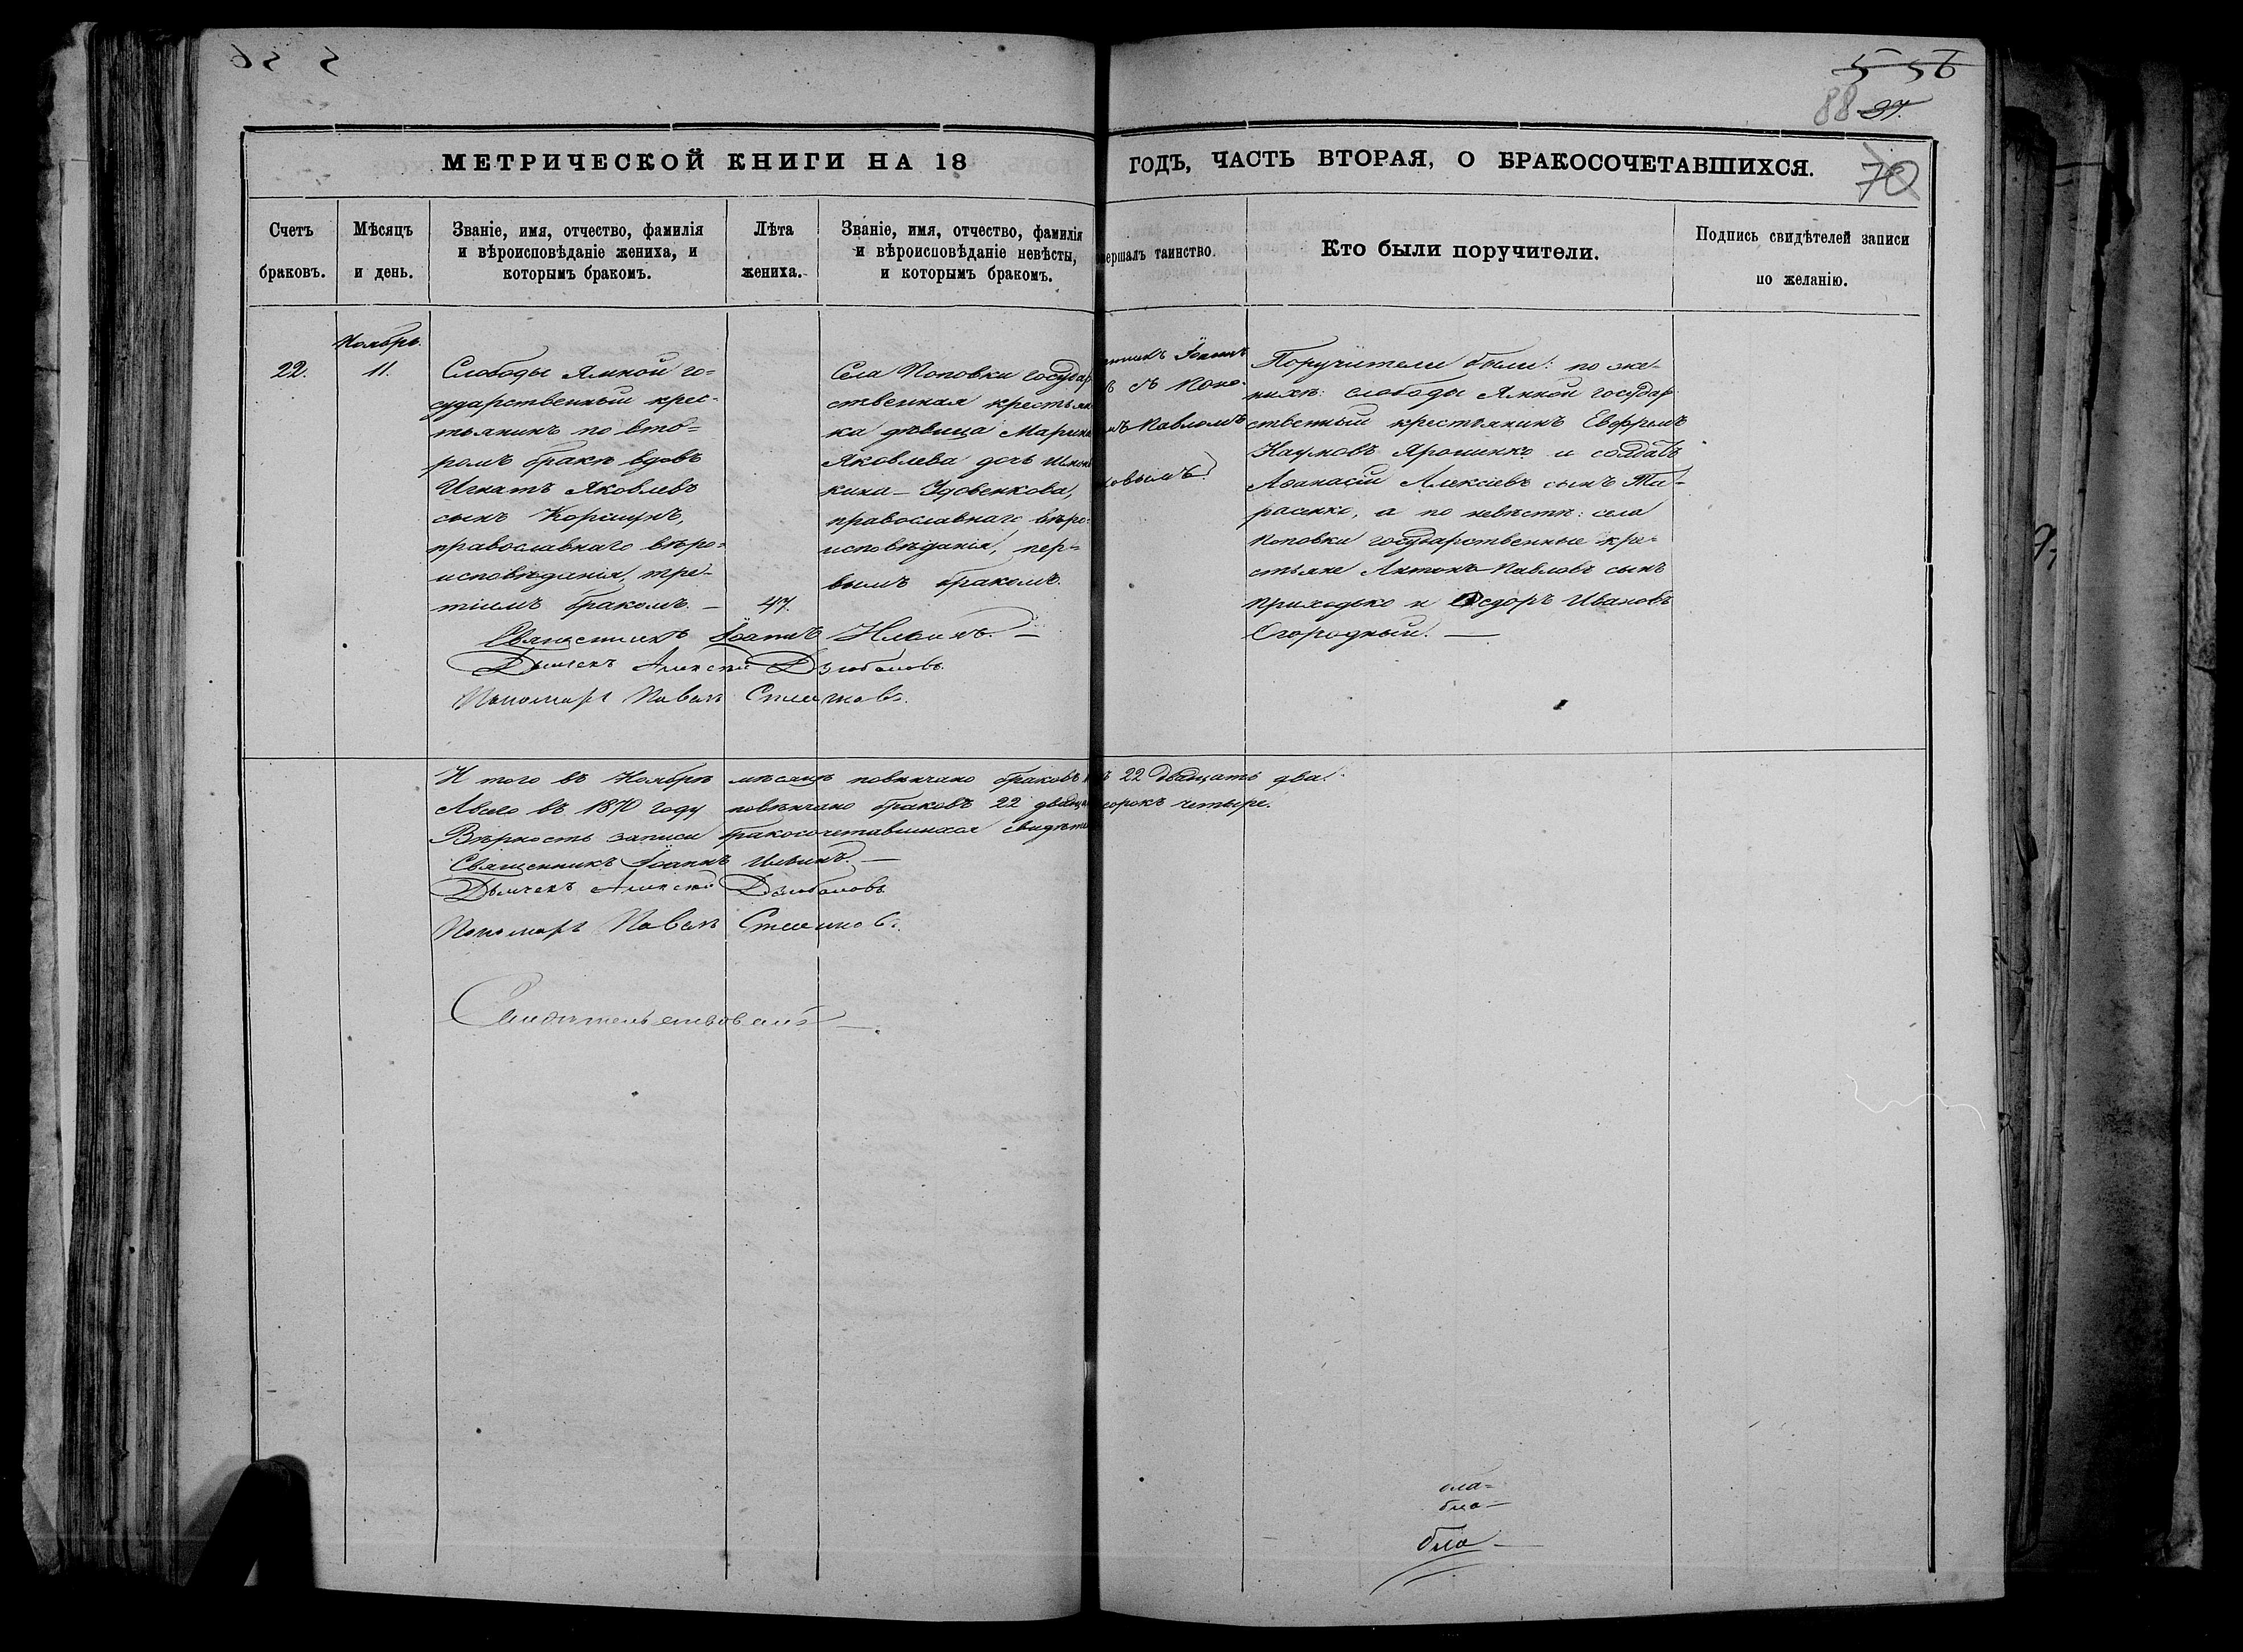 5 56
88 37.
70
МЕТРИЧЕСКОЙ КНИГИ НА 18
ГОДЪ, ЧАСТЬ ВТОРАЯ, О БРАКОСОЧЕТАВШИХСЯ.
Счетъ
браковъ.
Мѣсяцъ
и день.
Званіе, имя, отчество, фамилія
и вѣроисповѣданіе жениха, и
которымъ бракомъ.
Лѣта
жениха.
Званіе, имя, отчество, фамилія
и вѣроисповѣданіе невѣсты,
и которымъ бракомъ.
вершалъ таинство.
Кто были поручители.
Подпись свидѣтелей записи
по желанію.
22.
Ноябрь.
11.
Слободы Ямной го=
сударственный крес-
тьянинъ по вто=
ромъ бракѣ вдовъ
Игнатъ Яковлевъ
сынъ Коршунъ,
православнаго вѣро=
исповѣданія, тре-
тіимъ бракомъ. —
47.
Села Поповки государ
ственная крестьян
ка дѣвица Марина
Яковлева дочь
кина - Удовенкова,
православнаго вѣро=
исповѣданія, пер=
вымъ бракомъ.
нникъ Іоаннъ
ъ съ Поно-
мъ Павломъ
овымъ.
Поручители были: по же-
нихѣ: слободы Ямной государ
ственный крестьянинъ Евфремъ
Наумовъ Ярошенко и солдатъ
Аѳанасій Алексіевъ сынъ Та-
расенко, а по невѣстѣ: села
Поповки государственные кре-
стьяне Антонъ Павловъ сынъ
Приходько и Ѳедоръ Ивановъ
Огородный. —
Священникъ Іоаннъ Ильинъ. —
Дьячекъ Алексій Дзюбановъ
Пономарь Павелъ
И того въ Ноябрѣ мѣсяцѣ повѣнчано браковъ 22 двадцать два.
А всего въ 1870 году повѣнчано браковъ 22 двадц сорокъ четыре.
Вѣрность записи бракосочетавшихся свидѣтел
Священникъ Іоаннъ Ильинъ. —
Дьячекъ Алексій Дзюбановъ
Пономарь Павелъ
Свидѣтельствовалъ —